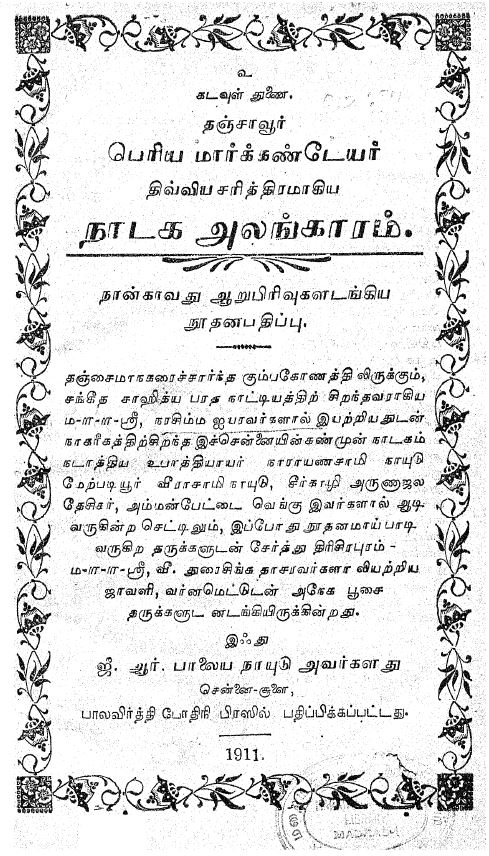 உ
கடவுள் துணை.
தஞ்சாவூர்
பெரிய மார்க்கண்டேயர்
திவ்விய சரித்திரமாகிய
நாடக அலங்காரம்.
நான்காவது ஆறுபிரிவுகளடங்கிய
நூதனபதிப்பு.
தஞ்சைமாநகரைச்சார்ந்த கும்பகோணத்திலிருக்கும்,
சங்கீத சாஹித்ய பரத நாட்டியத்திற் சிறந்தவராகிய
ம-ா-ா-ஸ்ரீ, நரசிம்ம ஐயரவர்களால் இயற்றியதுடன்
நாகரிகத்திற்சிறந்த இச்சென்னையின்கண்முன் நாடகம்
நடாத்திய உபாத்தியாயர் நாராயணசாமி நாயுடு
மேற்படியூர் வீராசாமி நாயுடு, சீர்காழி அருணாஜல
தேசிகர், அம்மண்பேட்டை வெங்கு இவர்களால் ஆடி
வருகின்ற செட்டிலும், இப்போது நூதனமாய்பாடி
வருகிற தருக்களுடன் சேர்த்து திரிசிரபுரம் -
ம-ா-ா-ஸ்ரீ, வீ. துரைசிங்க தாசரவர்களா லியற்றிய
ஜாவளி, வர்னமெட்டுடன் அநேக பூசை
தருக்களுட னடங்கியிருக்கின்றது.
இஃது
ஜீ. ஆர். பாலைய நாயுடு அவர்களது
சென்னை-சூளை,
பாலவிர்த்தி போதிரி பிரஸில் பதிப்பிக்கப்பட்டது.
1911.
MADRAS